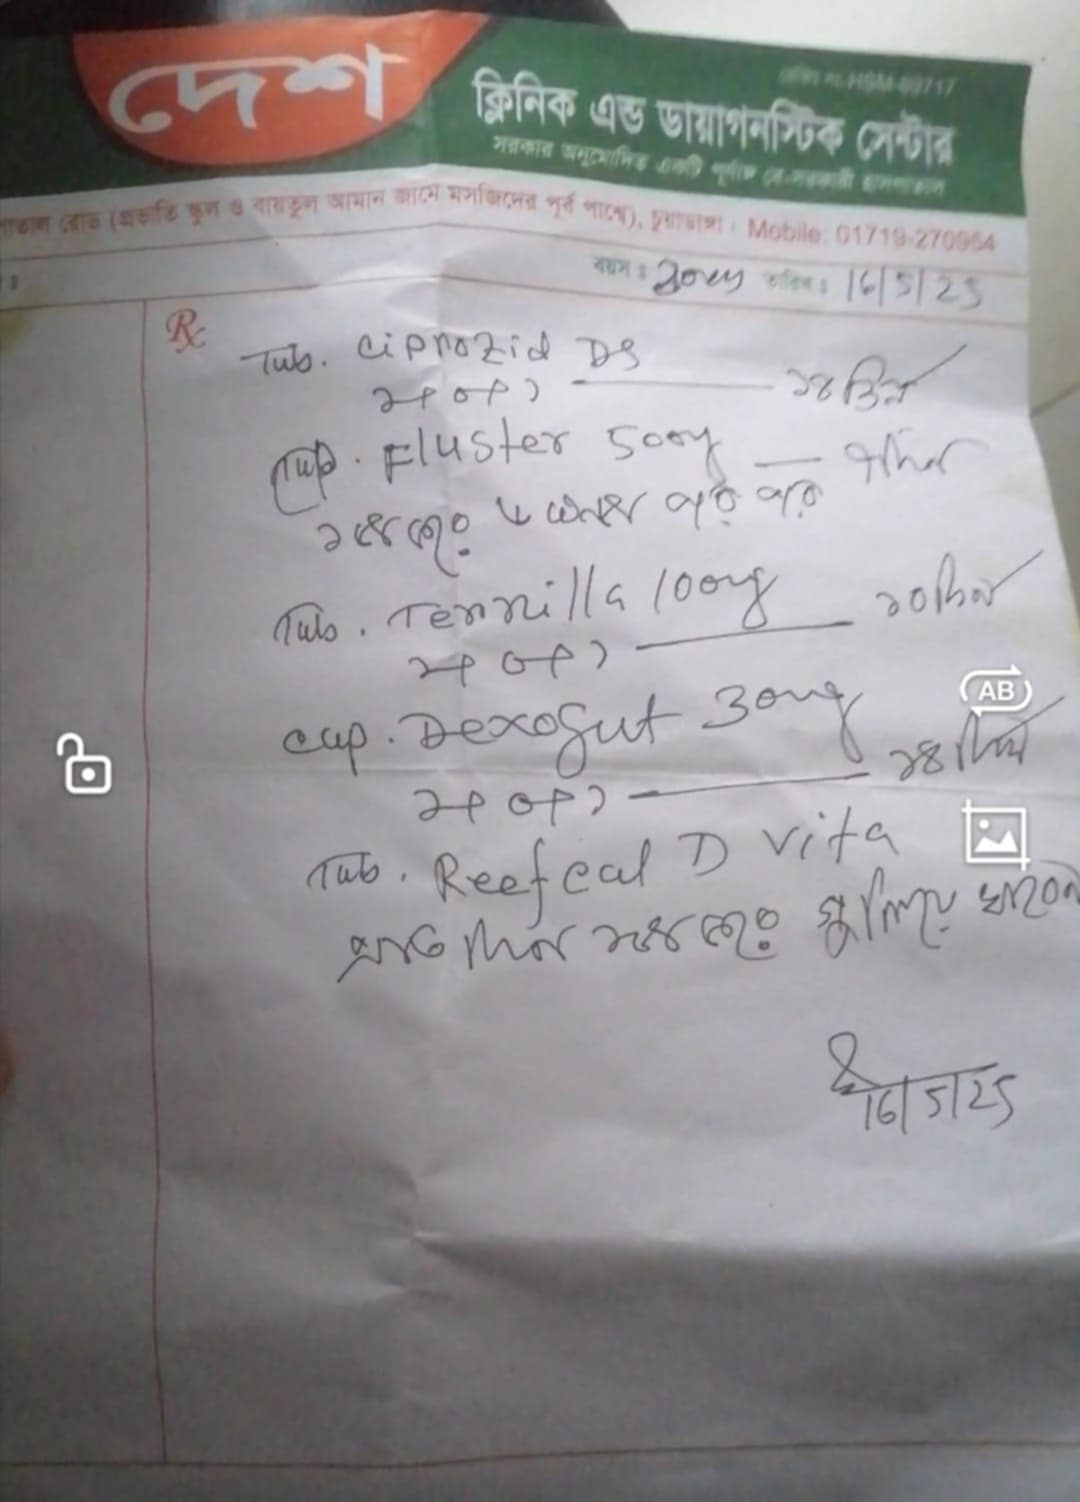 দেশ
ক্লিনিক এন্ড ডায়াগনস্টিক সেন্টার
সরকার অনুমোদিত একটি পূর্ণাঙ্গ বে-সরকারী হাসপাতাল
রোড (প্রভাতি স্কুল ও বায়তুল আমান জামে মসজিদের পূর্ব পাশ্বে), চুয়াডাঙ্গা। Mobile: 01719-270954
বয়স : তারিখ : 16/5/25
Rx
Tab. Ciprozid DS
১+০+১ ১৪ দিন
Cap. Fluster 500mg
১টা করে ৬ ঘন্টা পর পর
Tab. 100mg ১০ দিন
১+০+১
Cap. Dexogut 30mg ১৪ দিন
১+০+১
Tab. Reefcal D vita
প্রতি দিন ১টা করে খাবেন
16/5/25
AB